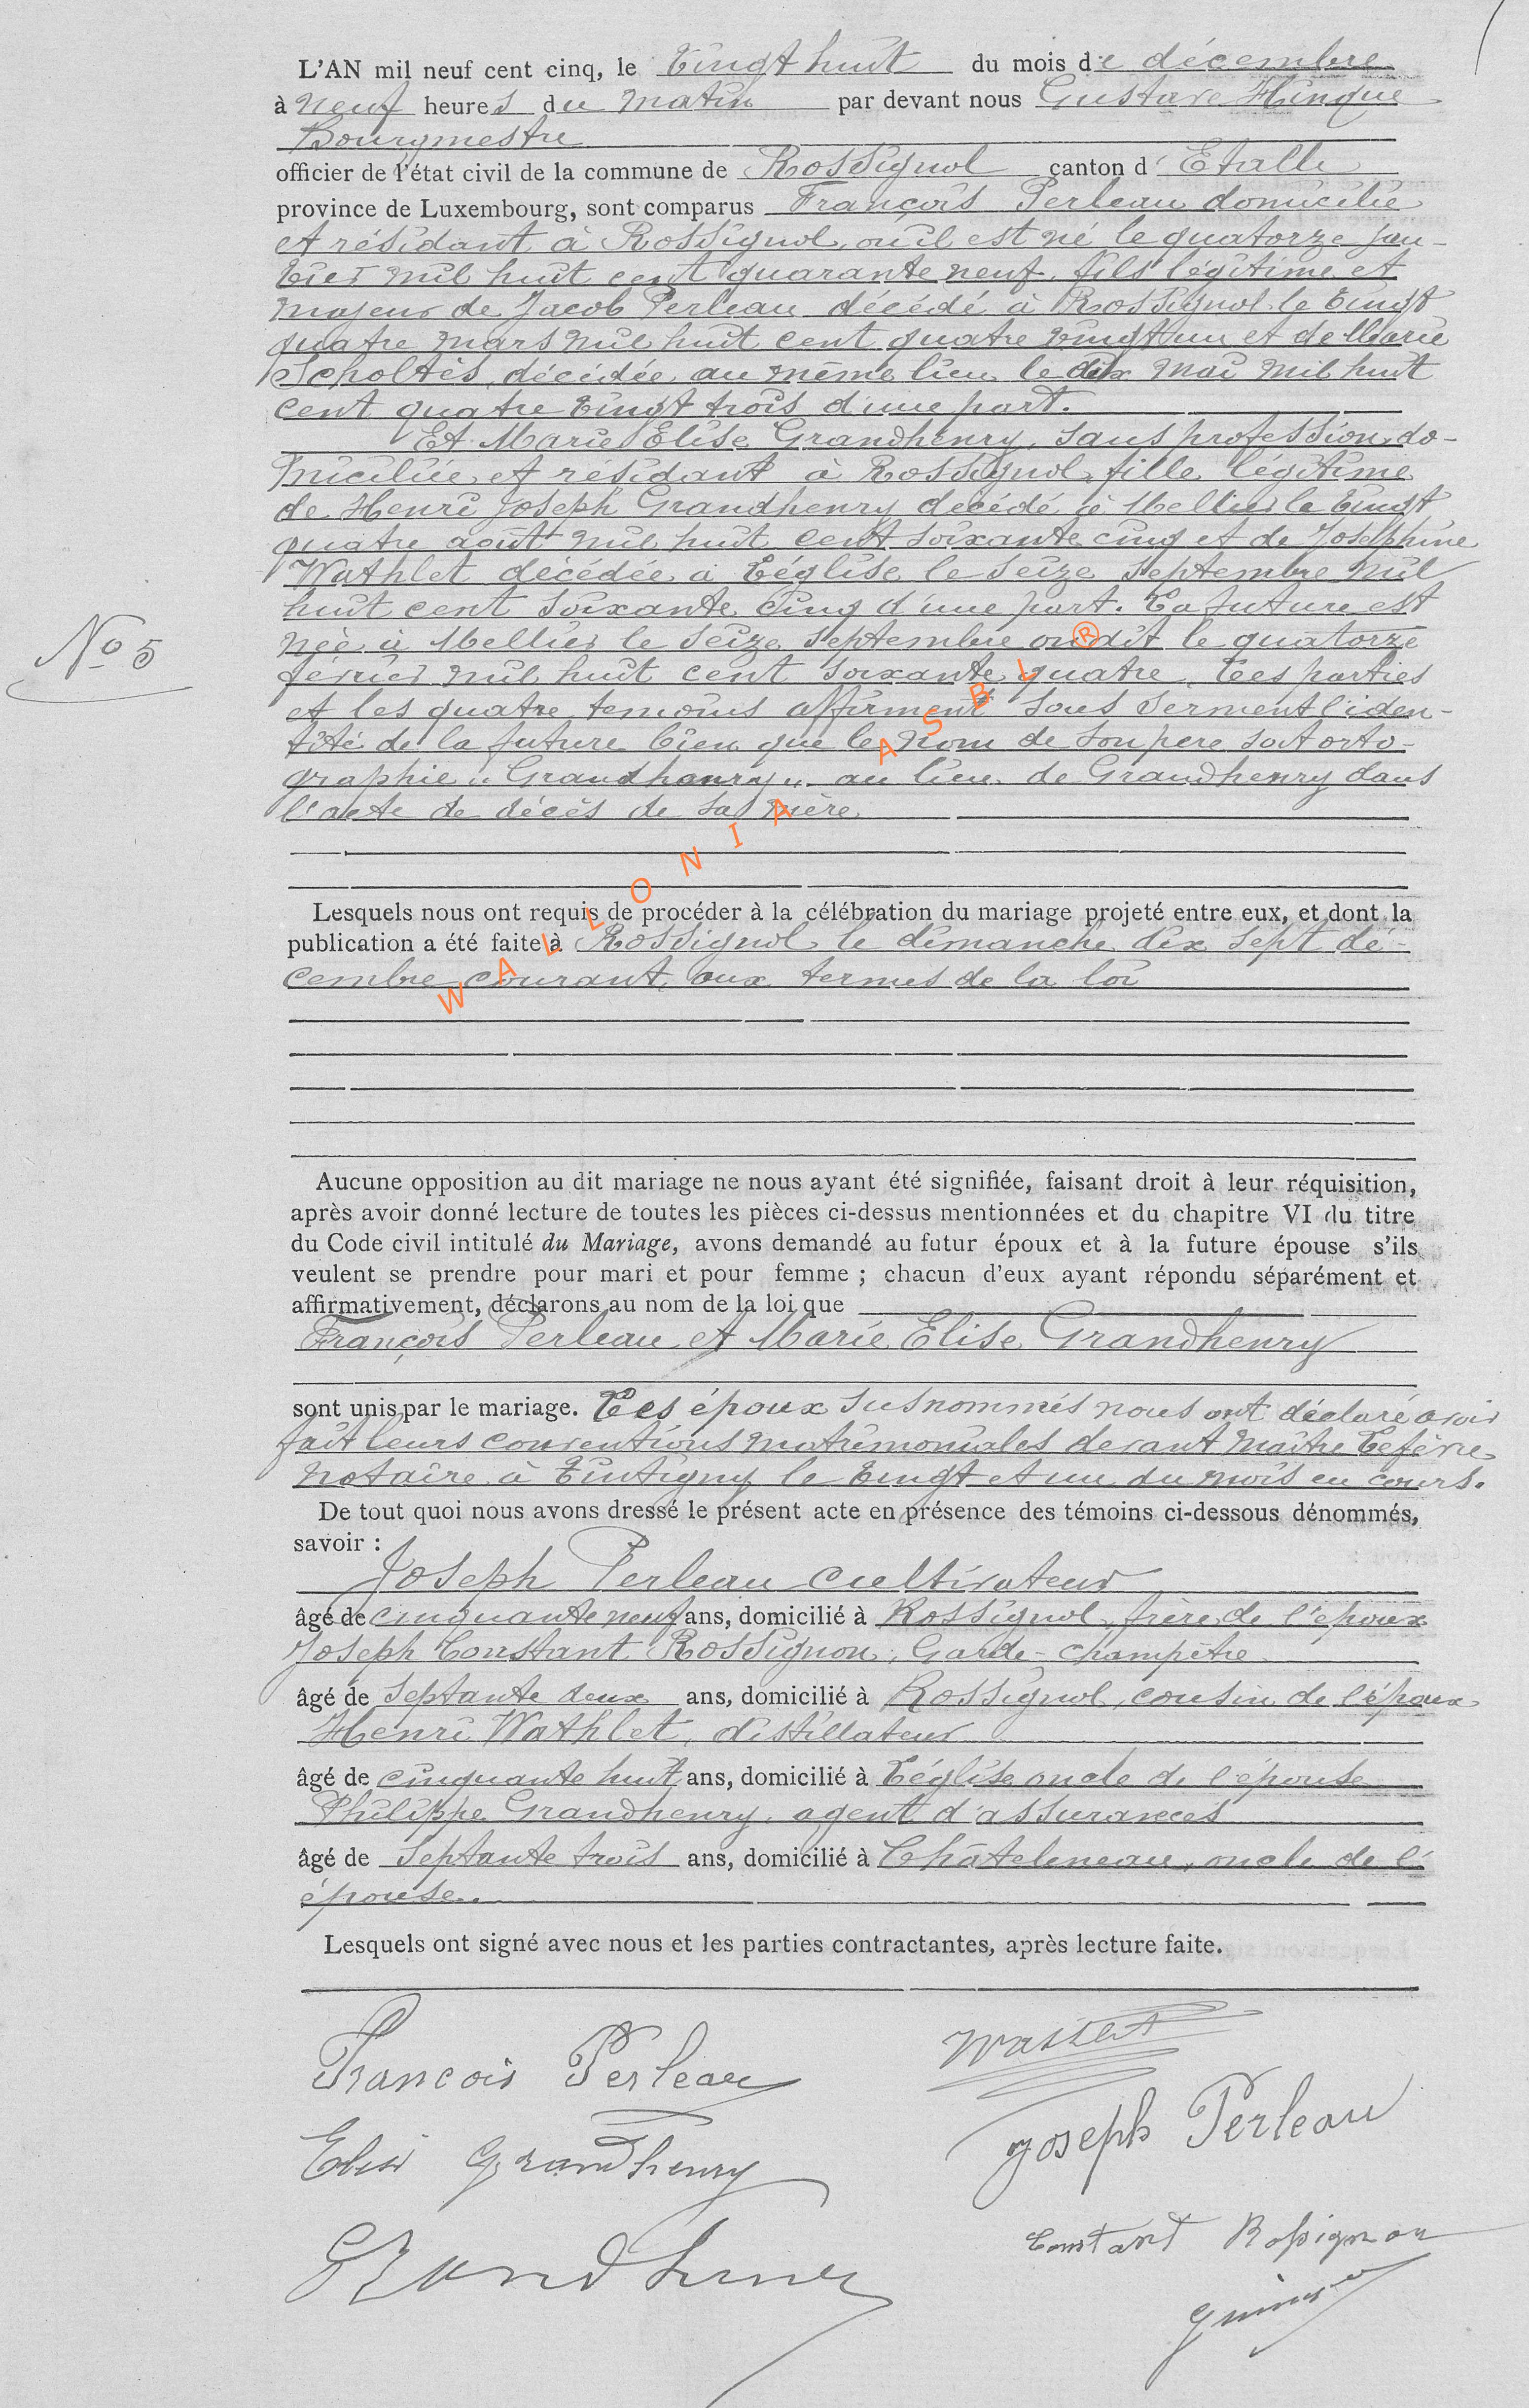 L'AN mil neuf cent cinq, le Vingt huit du mois de décembre
à neuf heures du matin par devant nous Gustave Hinque
Bourgmestre
officier de l'état civil de la commune de Rossignol canton d' Etalle
province de Luxembourg, sont comparus François Perleau domicilié
et résidant à Rossignol, ou il est né le quatorze jan-
vier mil huit cent quarante neuf, fils légitime et
majeur de Jacob Perleau décédé à Rossignol le vingt
quatre mars mil huit cent quatre vingt un et de Marie
Scholtès, décédée au même lieu le dix mai mil huit
cent quatre vingt trois d'une part.
Et Marie Elise Grandhenry, sans profession, do-
miciliée et résidant à Rossignol, fille légitime
de Henri Joseph Grandhenry décédé à Mellier le vingt
quatre août mil huit cent soixante cinq et de Joséphine
Wathlet décédée à Léglise le seize septembre mil
huit cent soixante cinq d'une part. La future est
née à Mellier le seize septembre on dit le quatorze
février mil huit cent soixante quatre. Les parties
et les quatre temoins affirment sous serment l'iden-
tité de la future bien que le nom de son pere soit orto-
graphie "Grandhanry" au lieu de Grandhenry dans
l'acte de décès de sa mère
N° 5
WALLONIA ASBL ®
Lesquels nous ont requis de procéder à la célébration du mariage projeté entre eux, et dont la
publication a été faite à Rossignol le dimanche dix sept dé-
cembre courant, aux termes de la loi
Aucune opposition au dit mariage ne nous ayant été signifiée, faisant droit à leur réquisition,
après avoir donné lecture de toutes les pièces ci-dessus mentionnées et du chapitre VI du titre
du Code civil intitulé du Mariage, avons demandé au futur époux et à la future épouse s'ils
veulent se prendre pour mari et pour femme ; chacun d'eux ayant répondu séparément et
affirmativement, déclarons au nom de la loi que
François Perleau et Marie Elise Grandhenry
sont unis par le mariage. Les époux susnommés nous ont déclaré avoir
fait leurs conventions matrimoniales devant Maître Lefèvre
notaire à Tintigny le vingt et un du mois en cours.
De tout quoi nous avons dressé le présent acte en présence des témoins ci-dessous dénommés,
savoir :
Joseph Perleau cultivateur
âgé de cinquante neuf ans, domicilié à Rossignol, frère de l'époux
Joseph Constant Rossignon, Garde-champêtre
âgé de septante deux ans, domicilié à Rossignol, cousin de l'époux
Henri Wathlet, distillateur
âgé de cinquante huit ans, domicilié à Léglise oncle de l'épouse
Philippe Grandhenry, agent d'assurances
âgé de septante trois ans, domicilié à Châtelineau, oncle de l'
épouse.
Lesquels ont signé avec nous et les parties contractantes, après lecture faite.
François Perleau
Joseph Perleau
Elise Grandhenry
Constant Rossignon